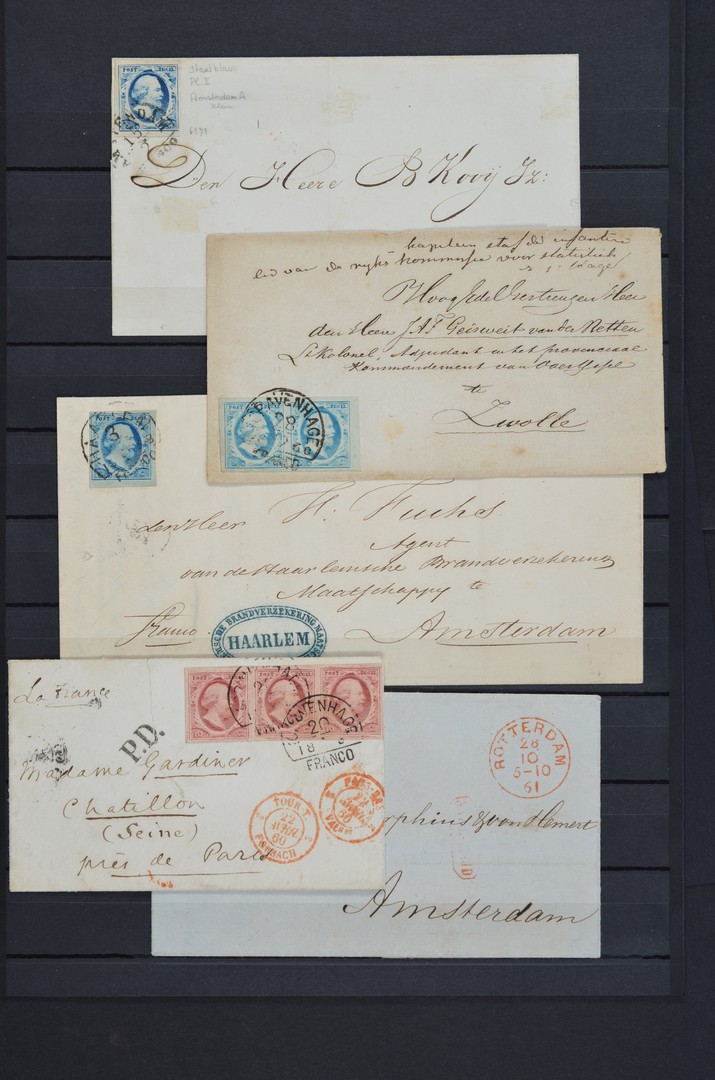 POST ZEGEL
Staalblauw
Pl. I
Amsterdam A
klein
Den Heere B Kooÿ Jz:
kapitein staf der infanterie
lid van de rijks kommissie voor statistiek
Hoog Edel Gestrengen Heer
den Heer J.A.F. Geisweit van der Netten
Lt Kolonel, Adjudant in het provinciaal
Kommandement van Overijssel
te
Zwolle
'S GRAVENHAGE
28
FRANCO
den Heer H. Fuchs
Agent
van de Haarlemsche Brandverzekering
Maatschappÿ te
Franco
Amsterdam
BRANDVERZEKERING
HAARLEM
La France
P.D.
Madame Gardiner
Chatillon
(Seine)
près de Paris
20
FRANCO
TOUR-T
22
AVRIL
60
FORBACH
ROTTERDAM
28
10
5-10
61
rphius & van Hemert
Amsterdam